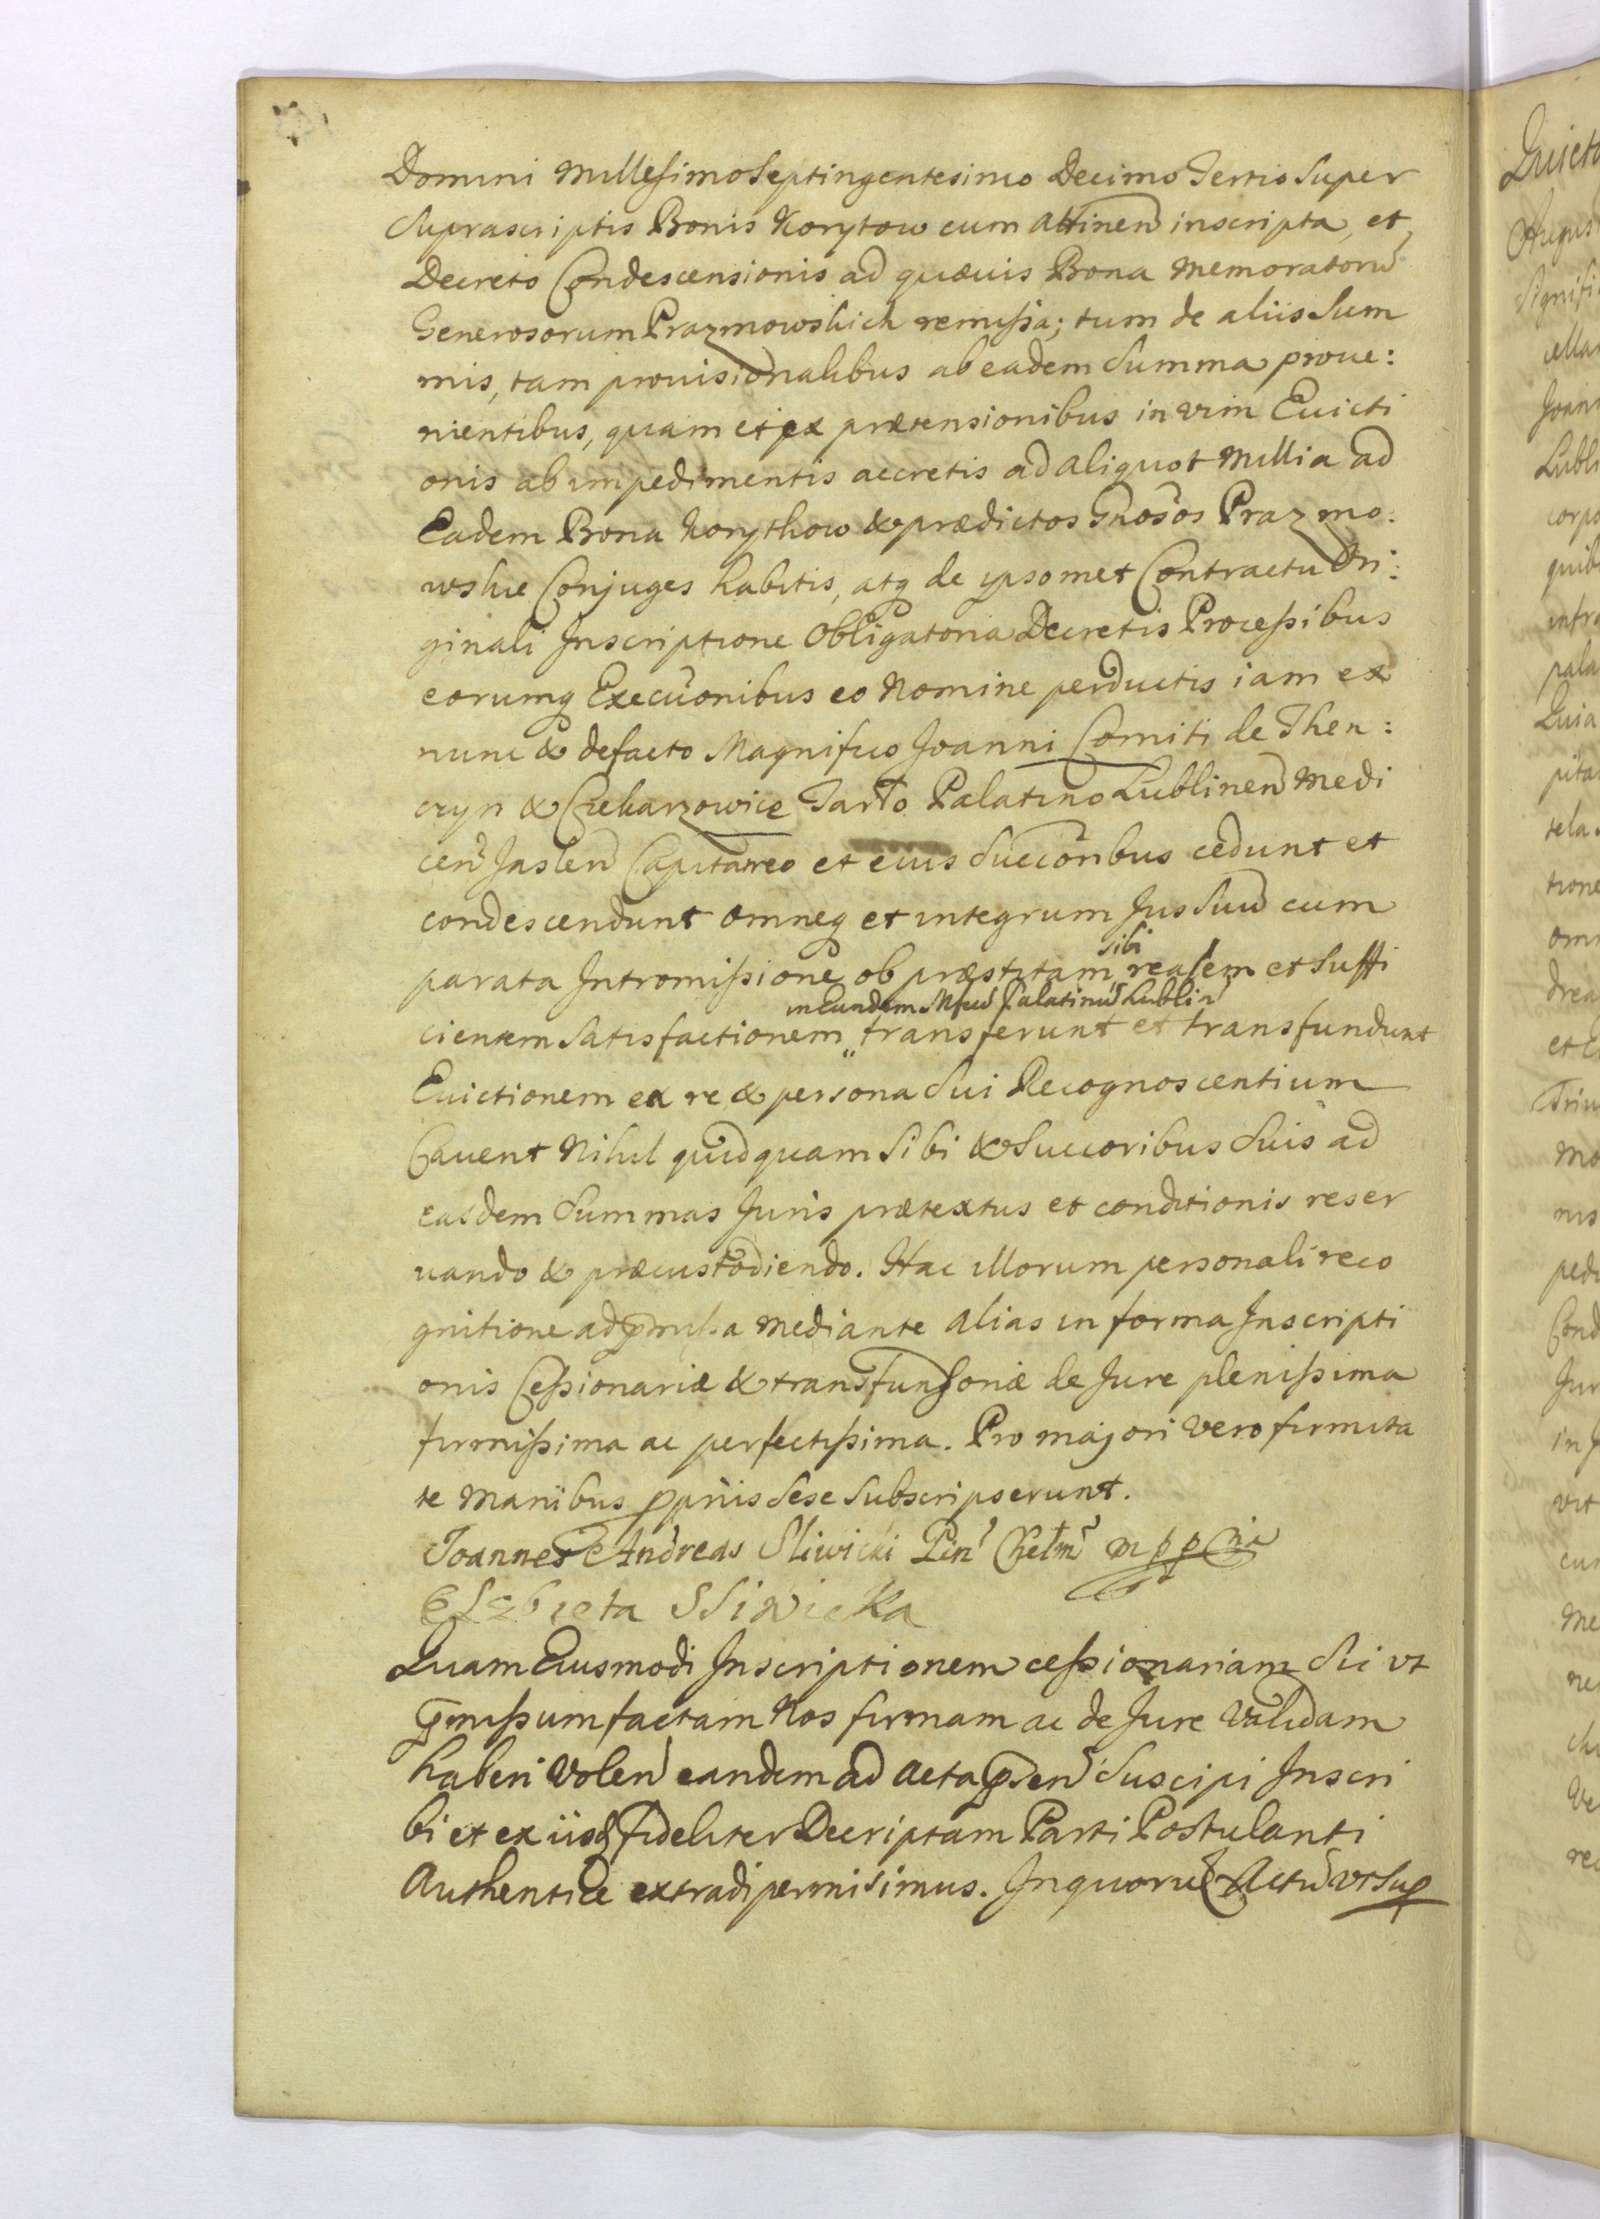 Domini Millesimo Septingentesimo Decimo Tertio Super
Suprascriptis Bonis Korytow cum attinen inscripta, et
Decreto Condescensionis ad quævis Bona Memoratorũ
Generosorum Prazmowskich remissa; tum de aliis Sum
mis, tam provisionalibus ab eadem Summa prove:
nientibus, quam et ex prætensionibus in vim Evicti
onis ab impedimentis accretis ad aliquot Millia ad
Eadem Bona Korythow & prædictos Gnosos Prazmo:
wskie Conjuges habitis, atq de ipsomet Contractu Ori:
ginali Inscriptione Obligatoria Decretis Processibus
eorumq Execuonibus eo Nomine perductis iam ex
nunc & defacto Magnifico Joanni Comiti de Then:
czyn & Czekarzowice Tarło Palatino Lublinen Medi
cen Jaslen Capitaneo et eius Succoribus cedunt et
condescendunt omneq et integrum Jus Suũ cum
parata Intromissione ob præstitam sibi realem et Suffi
cientem Satisfactionem in Eundem Mfcũ Palatinũ Lublin transferunt et transfundunt
Evictionem ex re & persona Sui Recognoscentium
Cavent Nihil quidquam Sibi & Succoribus Suis ad
easdem Summas Juris prætextus et conditionis reser
vando & præcustodiendo. Hac illorum personali reco
gnitione ad pmissa mediante alias in forma Inscripti
onis Cessionariæ & transfunsoriæ de Jure plenissima
firmissima ac perfectissima. Pro majori vero firmita
te Manibus ppriis Sese Subscripserunt.
Joannes Andreas Sliwicki Pin Chelm mpp
Elzbieta Sliwicka
Quam Eiusmodi Inscriptionem cessionariam Sic vt
pmissum factam Nos firmam ac de Jure Validam
haberi Volen eandem ad Acta psen Suscipi Inscri
bi et ex iisd fideliter Decriptam Parti Postulanti
Authentice extradi permisimus. In quorũ Actũ vt Sup